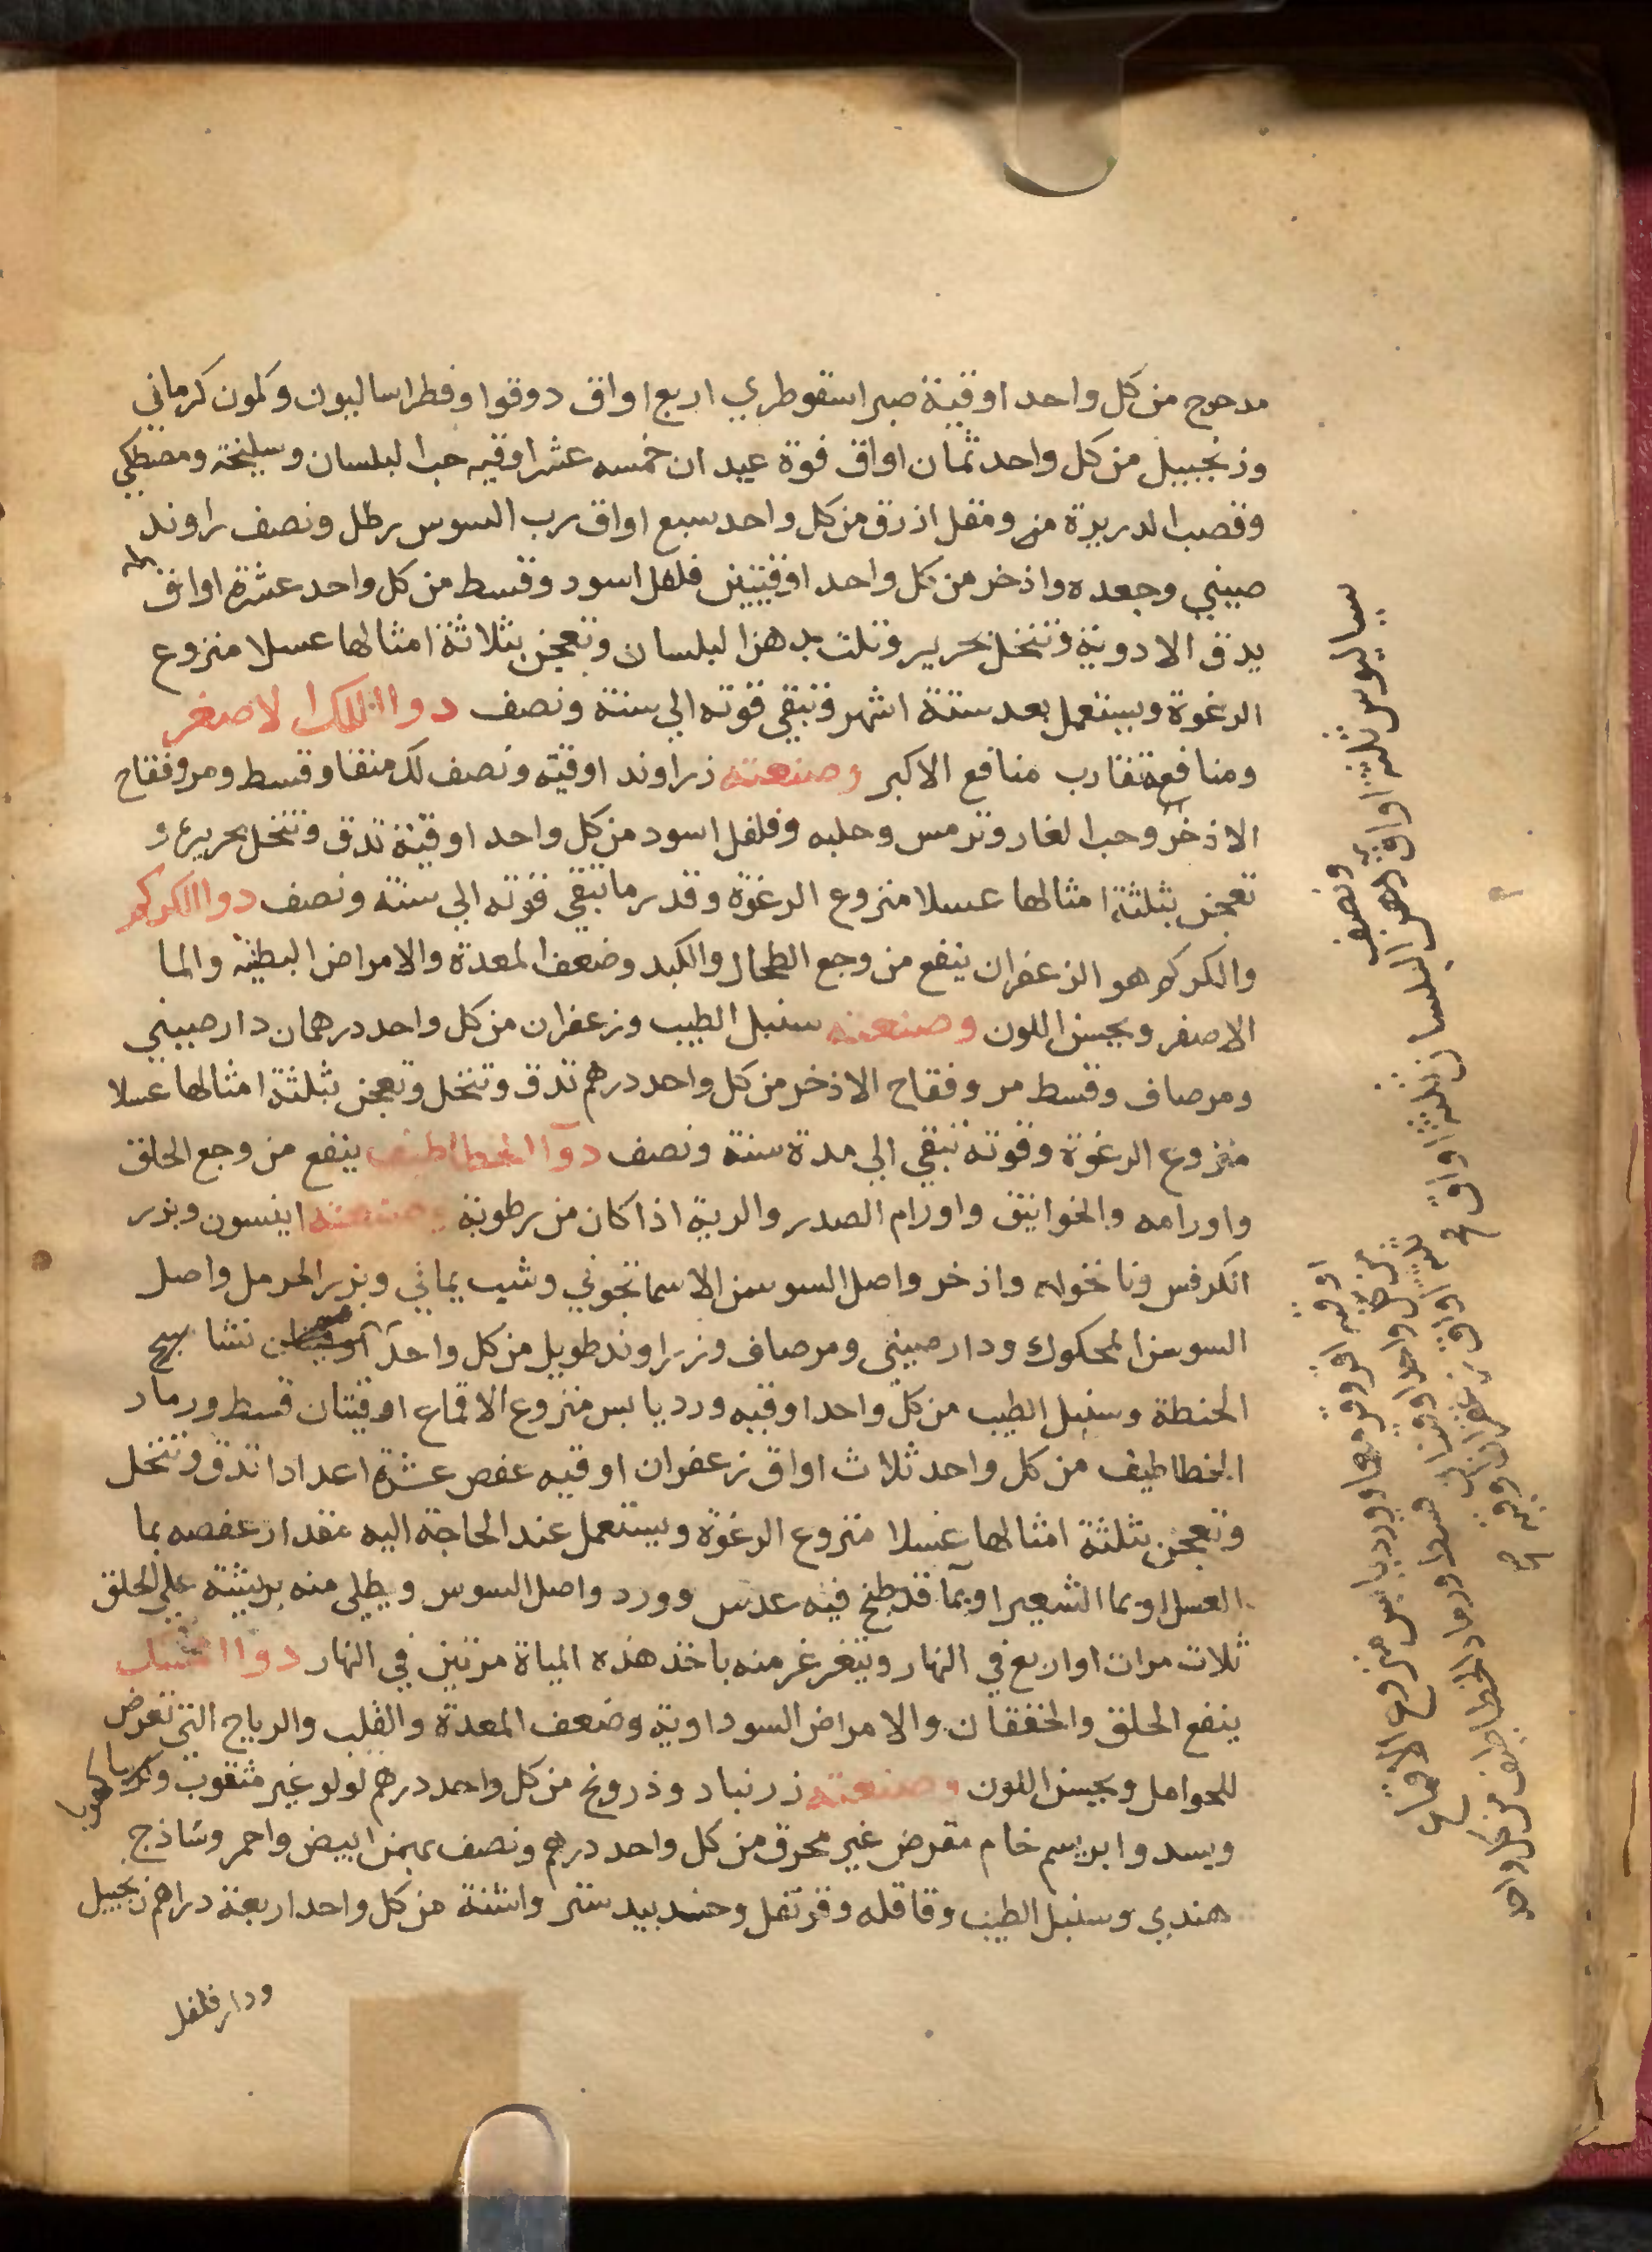 مدحرج من كل واحد اوقية صبر اسقوطري اربع اواق دوقوا وفطراساليون وكمون كرماني
وزنجبيل من كل واحد ثمان اواق فوة عيدان خمسه عشر اوقيه حب البلسان وسليخة ومصطكي
وقصب الدريرة مر ومقل ازرق من كل واحد سبع اواق رب السوس رطل ونصف راوند
صيني وجعده واذخر من كل واحد اوقيتين فلفل اسود وقسط من كل واحد عشرة اواق
يدق الادوية وتنخل بحرير وتلت بدهن البلسان وتعجن بثلاثة امثالها عسلا منزوع
الرغوة ويستعمل بعد ستة اشهر وتبقي قوته الي سنة ونصف دوا اللك الاصغر
ومنافعه تقارب منافع الاكبر وصنعته زراوند اوقيه ونصف لك منقا وقسط ومر وفقاح
الاذخر وحب الغار وترمس وحلبه وفلفل اسود من كل واحد اوقية تدق وتنخل بحريره و
تعجن بثلثة امثالها عسلا منزوع الرغوة وقدر ما تبقي قوته الي سنة ونصف دوا الكركم
والكركم هو الزعفران ينفع من وجع الطحال والكبد وضعف المعدة والامراض البطنيه والما
الاصفر ويحسن اللون وصنعته سنبل الطيب وزعفران من كل واحد درهمان دار صيني
ومر صاف وقسط مر وفقاح الاذخر من كل واحد درهم تدق وتنخل وتعجن بثلثة امثالها عسلا
منزوع الرغوة وقوته تبقي الي مدة سنة ونصف دوآ الخطاطيف ينفع من وجع الحلق
واورامه والخوانيق واورام الصدر والرية اذا كان من رطوبة وصنعته انيسون وبزر
الكرفس ونانخواه واذخر واصل السوسن الاسمانجوني وشب يماني وبزر الحرمل واصل
السوسن المحكوك ودار صيني ومر صاف وزراوند طويل من كل واحد نشا
الحنطة وسنبل الطيب من كل واحد اوقيه ورد يابس منزوع الاقماع اوقيتان قسط ورماد
الخطاطيف من كل واحد ثلاث اواق زعفران اوقيه عفص عشرة اعدادا تدق وتنخل
وتعجن بثلثة امثالها عسلا منزوع الرغوة ويستعمل عند الحاجة اليه مقدار عفصه بما
العسل او بما الشعير او بمآ قد طبخ فيه عدس وورد واصل السوس ويطلى منه بريشة علي الحلق
ثلاث مرات او اربع في النهار ويتغرغر منه باخذ هذه المياة مرتين في النهار دوا المسك
ينفع الحلق والخفقان والامراض السوداوية وضعف المعدة والقلب والرياح التي تعرض
للحوامل ويحسن اللون وصنعته زرنباد وذرونج من كل واحد درهم لولو غير مثقوب وكهربا
وبسد وابريسم خام مقرض غير محرق من كل واحد درهم ونصف بهمن ابيض واحمر وشاذج
هندي وسنبل الطيب وقاقله وقرنفل وجندبيدستر واشنة من كل واحد اربعة دراهم زنجبيل
ودار فلفل
سياليوس ثلثة اواق دهن البلسان ثلثة اواق
ونصف
من كل واحد اوقيتان قسط ورماد الخطاطيف من كل واحد
ثلثة اواق زعفران اوقية
اوقيه ورد يابس منزوع الاقماع